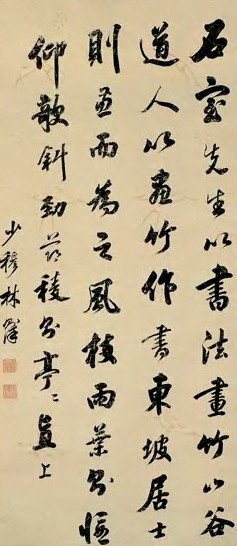 石室先生以書法畫竹山谷
道人以畫竹作書東坡居士
則兼而為之風枝雨葉則偃
仰欹斜勁節稜則亭〻直上
少穆林則徐